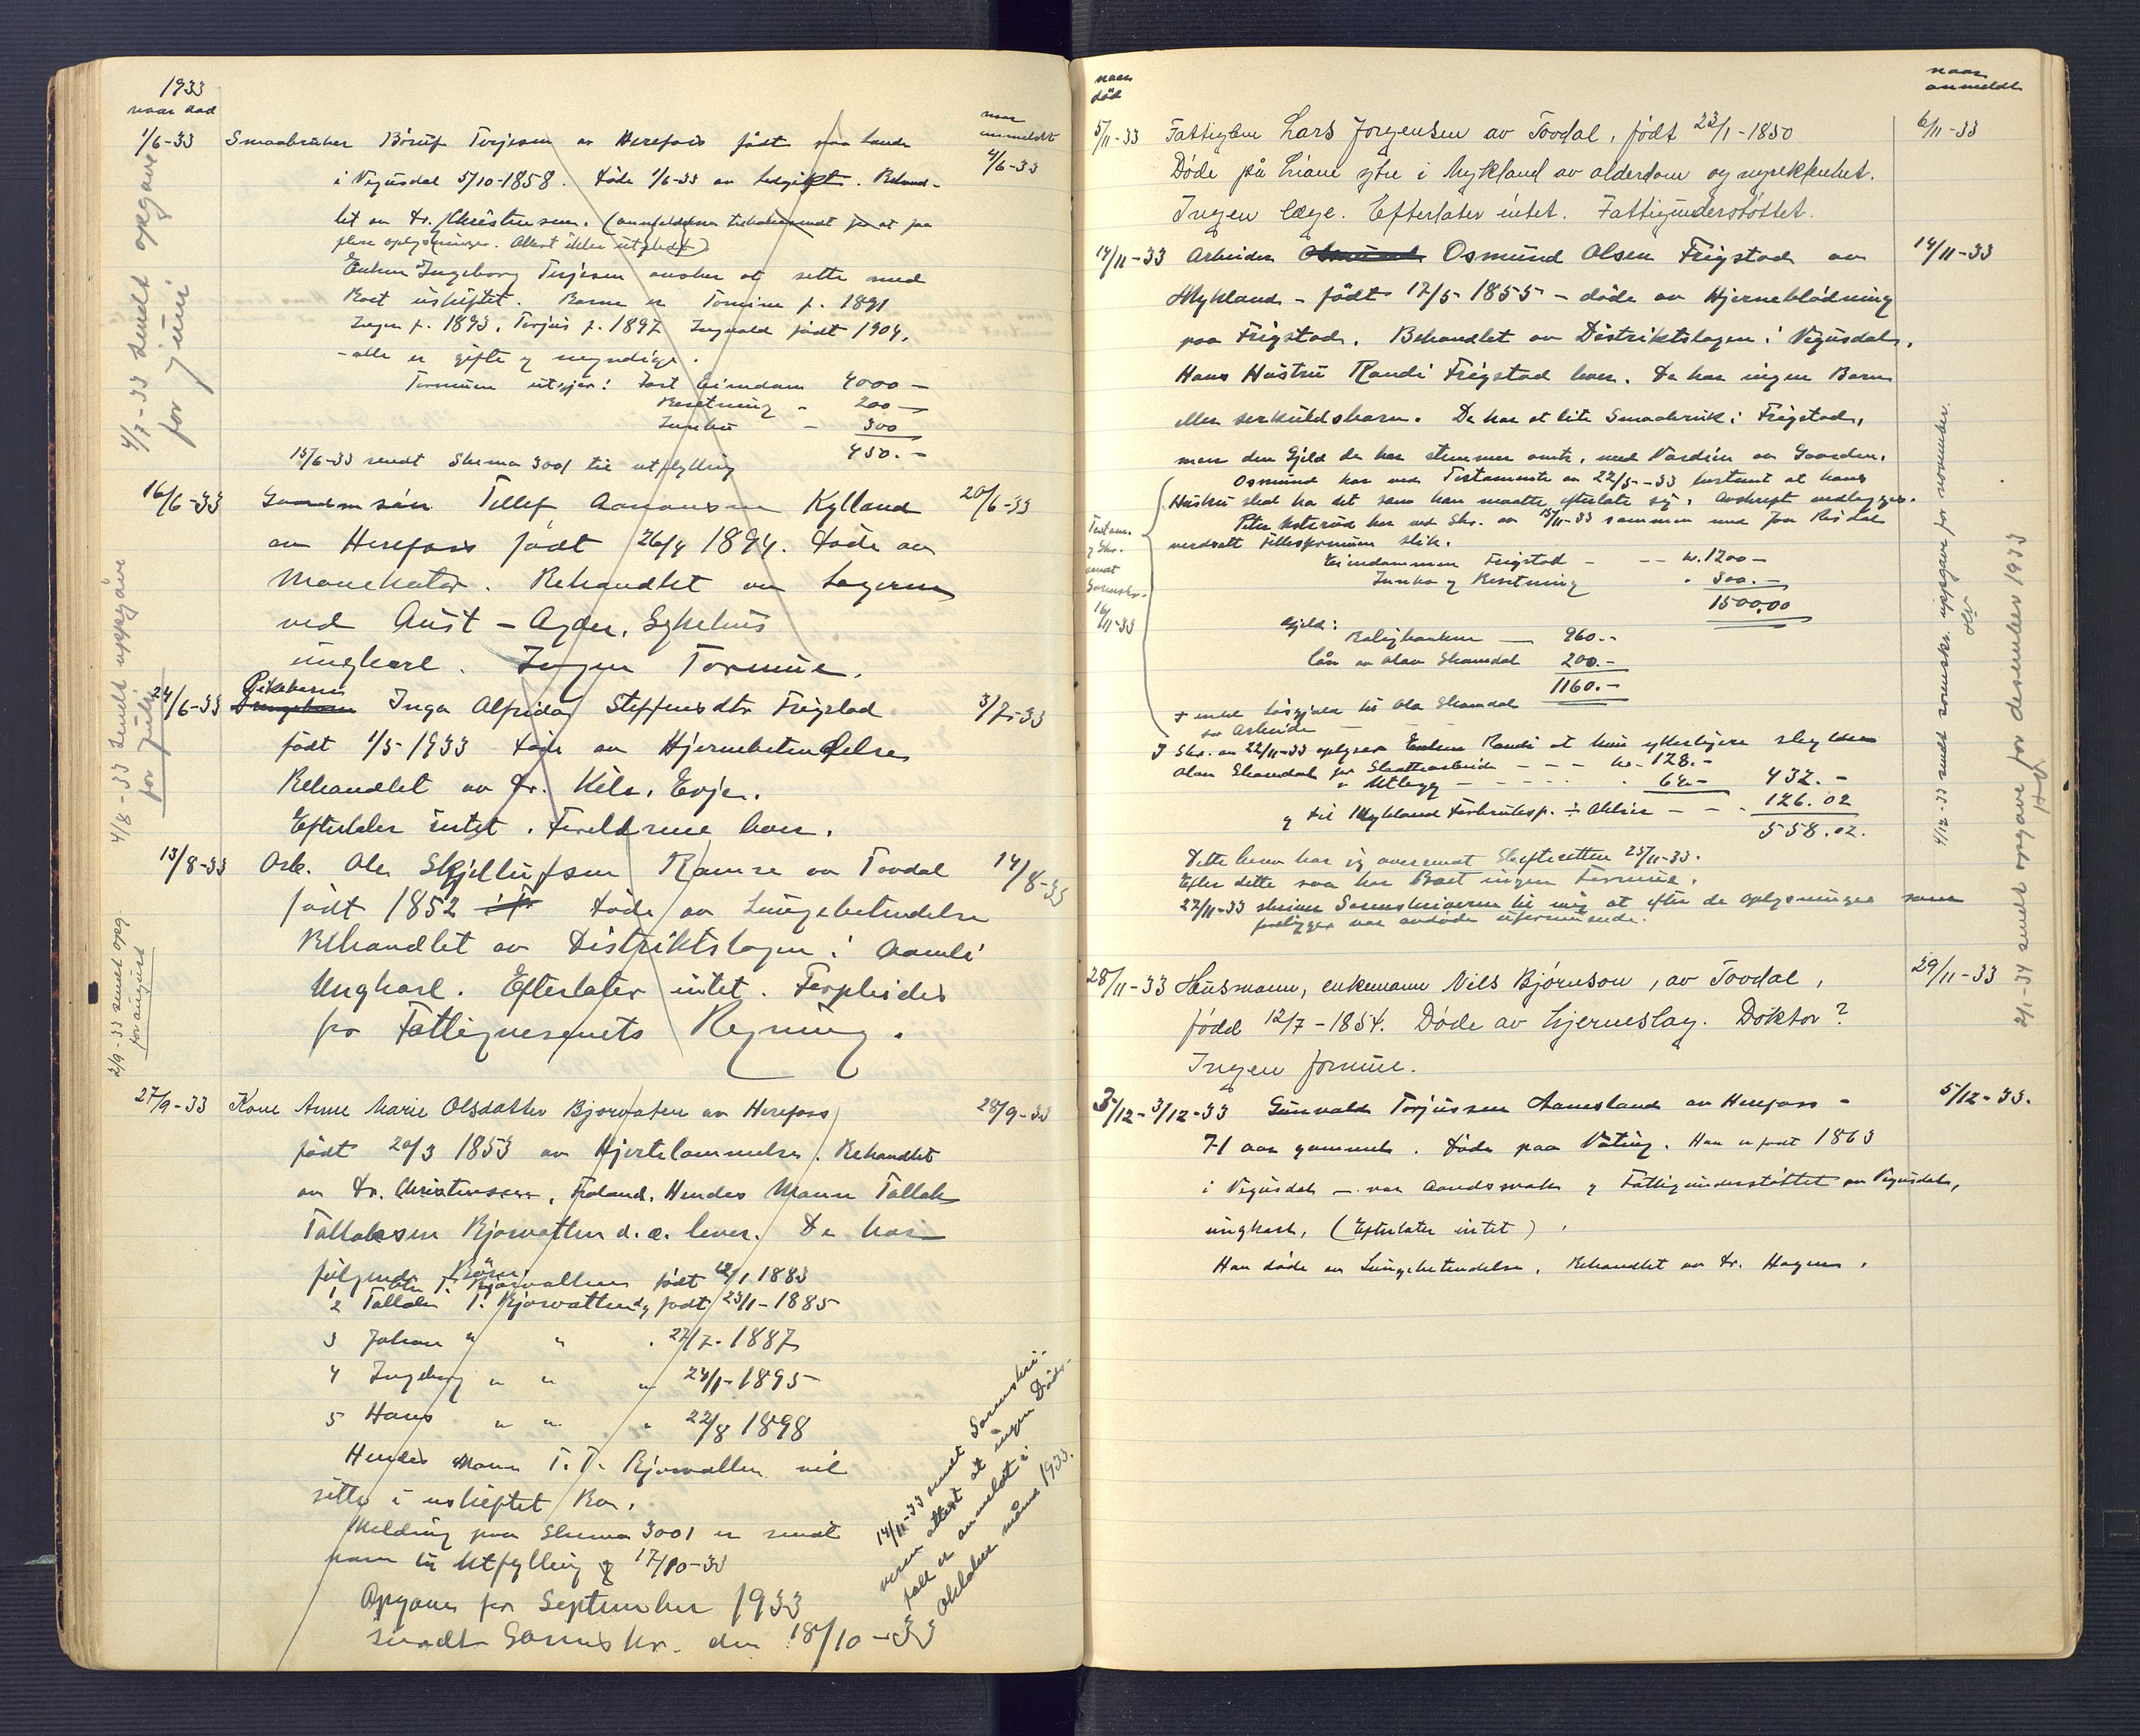 1933
naar død
naar
anmeldt
1/6-33 Smaabruker Böruf Terjesen av Herefoss født paa Lande 4/6-33
i Vegusdal 5/10-1858. døde 1/6-33 av Ledgikt. Behand-
let av Dr. Christensen. (anmelderen tilkallt for at faa
flere oplysninger. Attest ikke utstedt)
Enken Ingeborg Terjesen ønsker at sitte med
Boet uskiftet. Barna er Tomine f. 1891
Inga f. 1893, Terjus f. 1897 Ingvald født 1904,
- alle er gifte og myndige.
Formuen utgjør: Fast Eiendom 4000 -
Besetning - 200 -
Innbu - 300
450. -
15/6-33 sendt Skema 3001 til utfylling
16/6-33 Gaardm søn Tellef Aanonsen Kylland 20/6-33
av Herefoss født 26/4 1894. døde av
Mavekatar. Behandlet av Lægerne
ved Aust-Agder Sykehus
ungkarl. Ingen Formue.
Pikebarn
24/6-33 Inga Alfrida Steffensdtr Frigstad 3/7-33
født 1/5-1933 døde av Hjernebetendelse
Behandlet av Dr. Kile, Evje.
Efterlater intet. Foreldrene lever.
13/8-33 Arb. Ole Skjellufsen Ramse av Tovdal 14/8-33
født 1852 døde av Lungebetendelse
Behandlet av Distriktslægen i Aamli
Ungkarl. Efterlater intet. Forpleides
for Fattigvesenets Regning.
27/9-33 Kone Anne Marie Olsdatter Bjorvaten av Herefoss 28/9-33
født 20/3 1853 av Hjertelammelse. Behandlet
av Dr. Christensen, Froland. Hendes Mann Tallak
Tallaksen Bjorvatten d.e. lever. De har
følgende Børn:
Ole T. Bjorvatten født 12/1 1883
2 Tallak T. Bjorvatten dy født 23/1-1885
3 Johan " " . 27/7-1887
4 Ingeborg " " " 24/1-1895
5 Hans " " " 22/8 1898
Hendes Mann T.T. Bjorvatten vil
sitte i uskiftet Bo.
Melding paa Skema 3001 er sendt
ham til Utfylling 17/10-33
Opgaver for September 1933
sendt Sorenskr. den 18/10-33
14/11-33 sendt Sorenskri-
veren attest at ingen Døds-
fall er anmeldt i
oktober måned 1933.
4/7-33 sendt opgave
for juni
4/8-33 sendt uppgave
for juli
2/9-33 sendt opg.
for august
naar
død
naar
anmeldt
5/11-33 Fattiglem Lars Jorgensen av Tovdal, født 23/1-1850 6/11-33
Døde på Liane ytre i Mykland av alderdom og svekkenhet.
Ingen læge. Efterlater intet. Fattigunderstøttet.
14/11-33 Arbeider Osmund Olsen Frigstad av 14/11-33
Mykland - født 17/5-1855 - døde av Hjerneblødning
paa Frigstad. Behandlet av Distriktslægen i Vegusdal.
Hans Hustru Randi Frigstad lever. De har ingen Barn
eller serkuldsbarn. De har et lite Smaabruk i Frigstad,
men den Gjeld de har stemmer omtr. med Værdien av Gaarden.
Osmund har ved Testamente av 22/5-33 bestemt at hans
Hustru skal ha det som han maatte efterlate sig. Avskrift vedlegges.
Peter Ketterud har ved Skr. av 15/11-33 sammen med
verdsatt fellesformuen slik.
Eiendommen Frigstad - -- kr. 1200 -
Innbo og Besetning " 300. -
1500,00
Gjeld:
Boligbanken - 960.-
lån av Olav Skamdal 200.-
1160.-
+ endel Løsgjæld til Ola Skamdal
for Arbeide
I Skr. av 22/11-33 oplyser Enken Randi at hun ytterligere skylder
Olav Skamdal for Skattearbeide - - - kr. 128.-
" Utlegg - - - - . 64- 432. -
og til Mykland Forbruksp. ÷ Aktier - - . 126.02
558.02.
Dette brev har jeg oversendt Skifteretten 25/11-33.
Efter dette saa har Boet ingen Formue.
27/11-33 skriver Sorenskriveren til mig at efter de oplysninger som
foreligger var avdøde uformuende.
Testam.
og Skr.
sendt
Sorenskr.
16/11-33
28/11-33 Husmann, enkemann Nils Bjørnson, av Tovdal, 29/11-33
fødd 12/7-1854. Døde av hjerneslag. Doktor?
Ingen formue.
3/12-33 Gunvald Terjussen Aamesland av Herefoss - 5/12-33.
71 aar gammel. døde paa Väting. Han er født 1863
i Vegusdal - var Aandssvak og Fattigunderstøttet av Vegusdal,
ungkarl, (Efterlater intet).
Han døde av Lungebetendelse. Behandlet av Dr. Hagene.
4/12-33 sendt sorenskr. uppgave for november.
2/1-34 sendt opgave for desember 1933